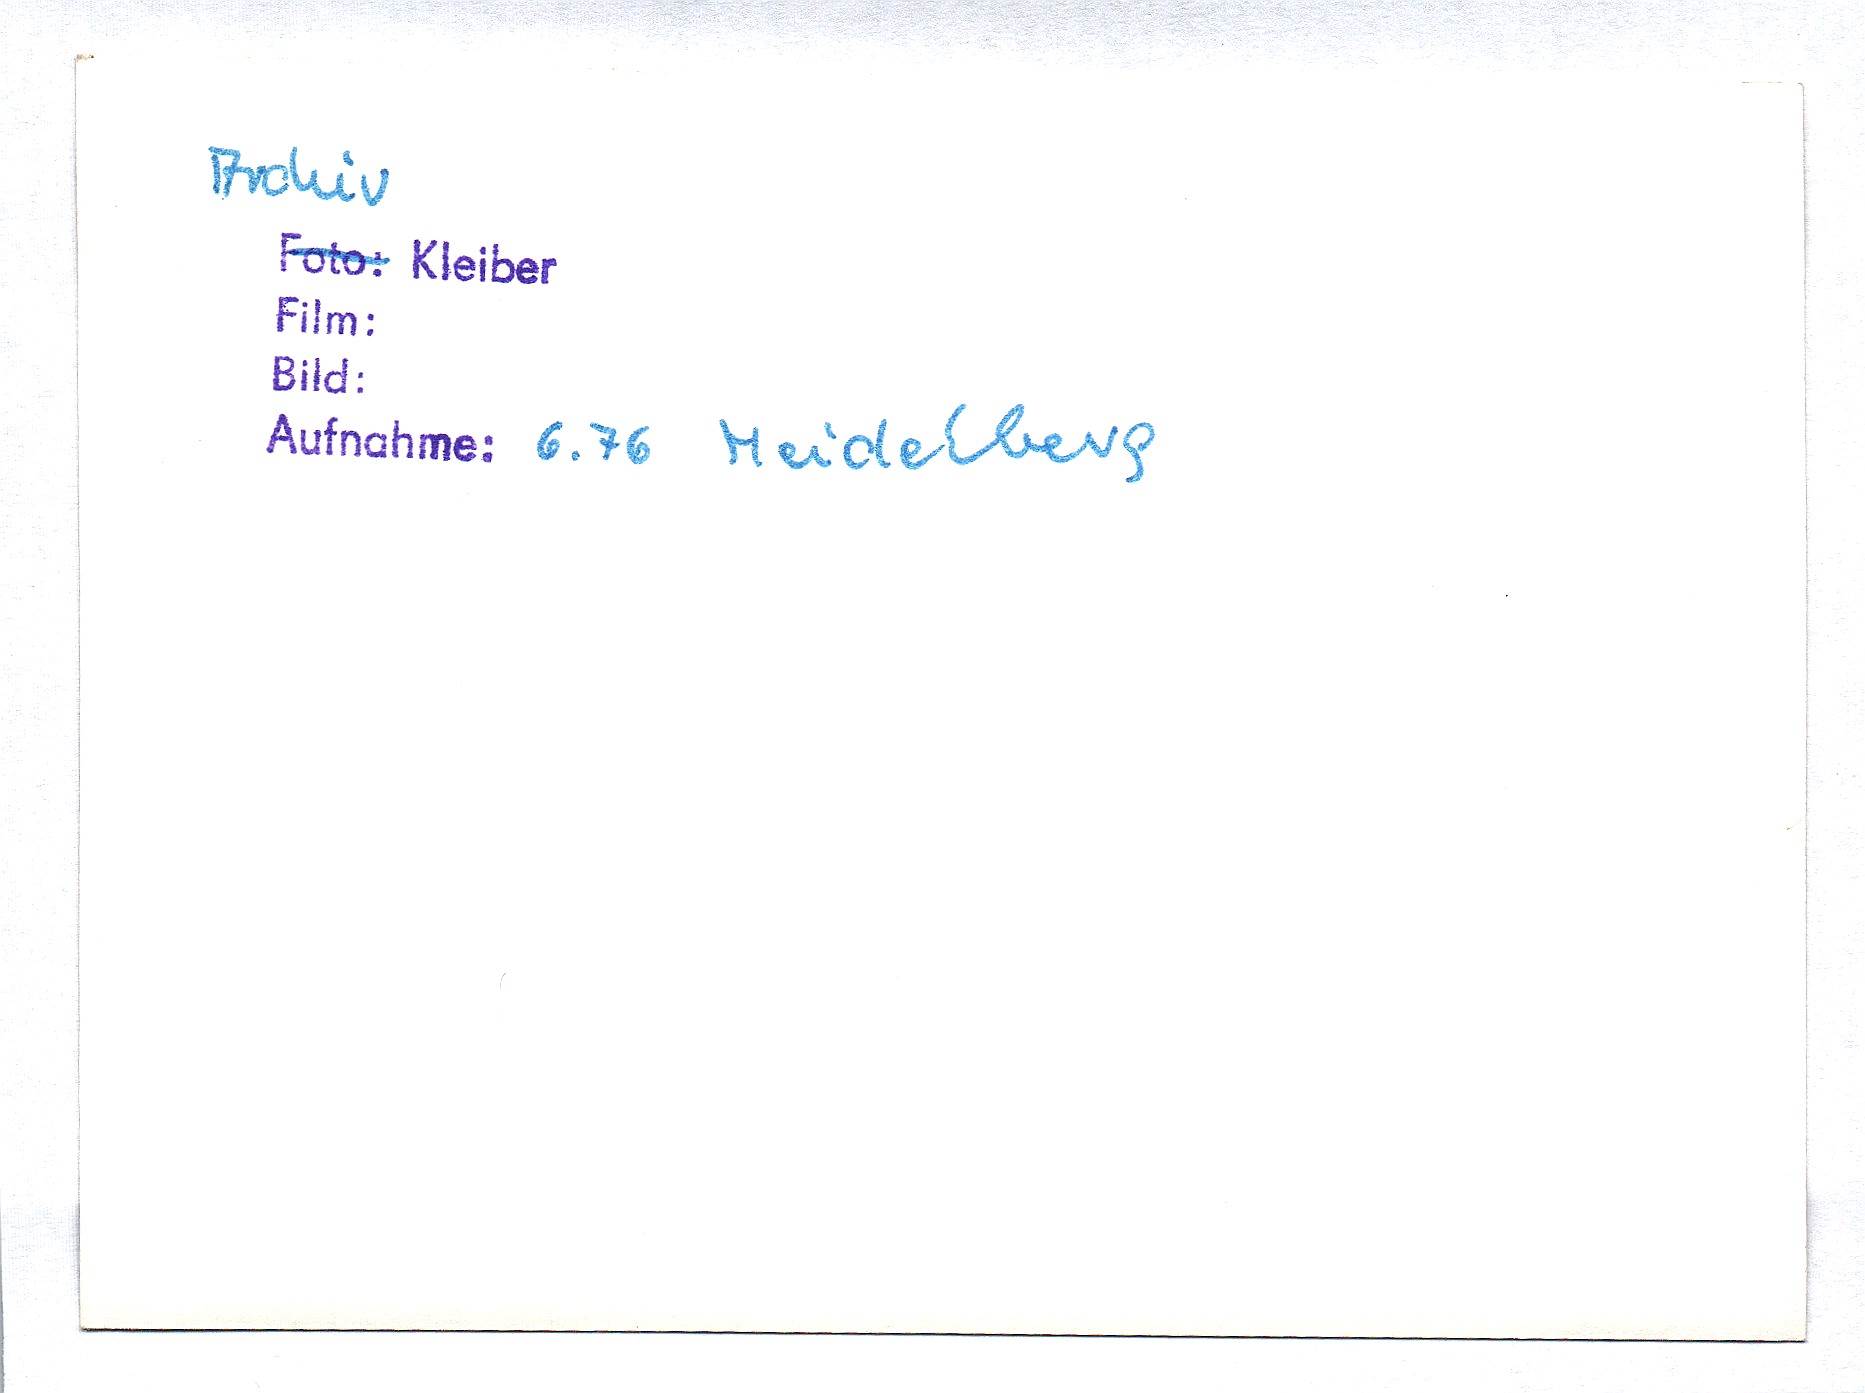 Archiv
Foto: Kleiber
Film:
Bild:
Aufnahme: 6.76 Heidelberg